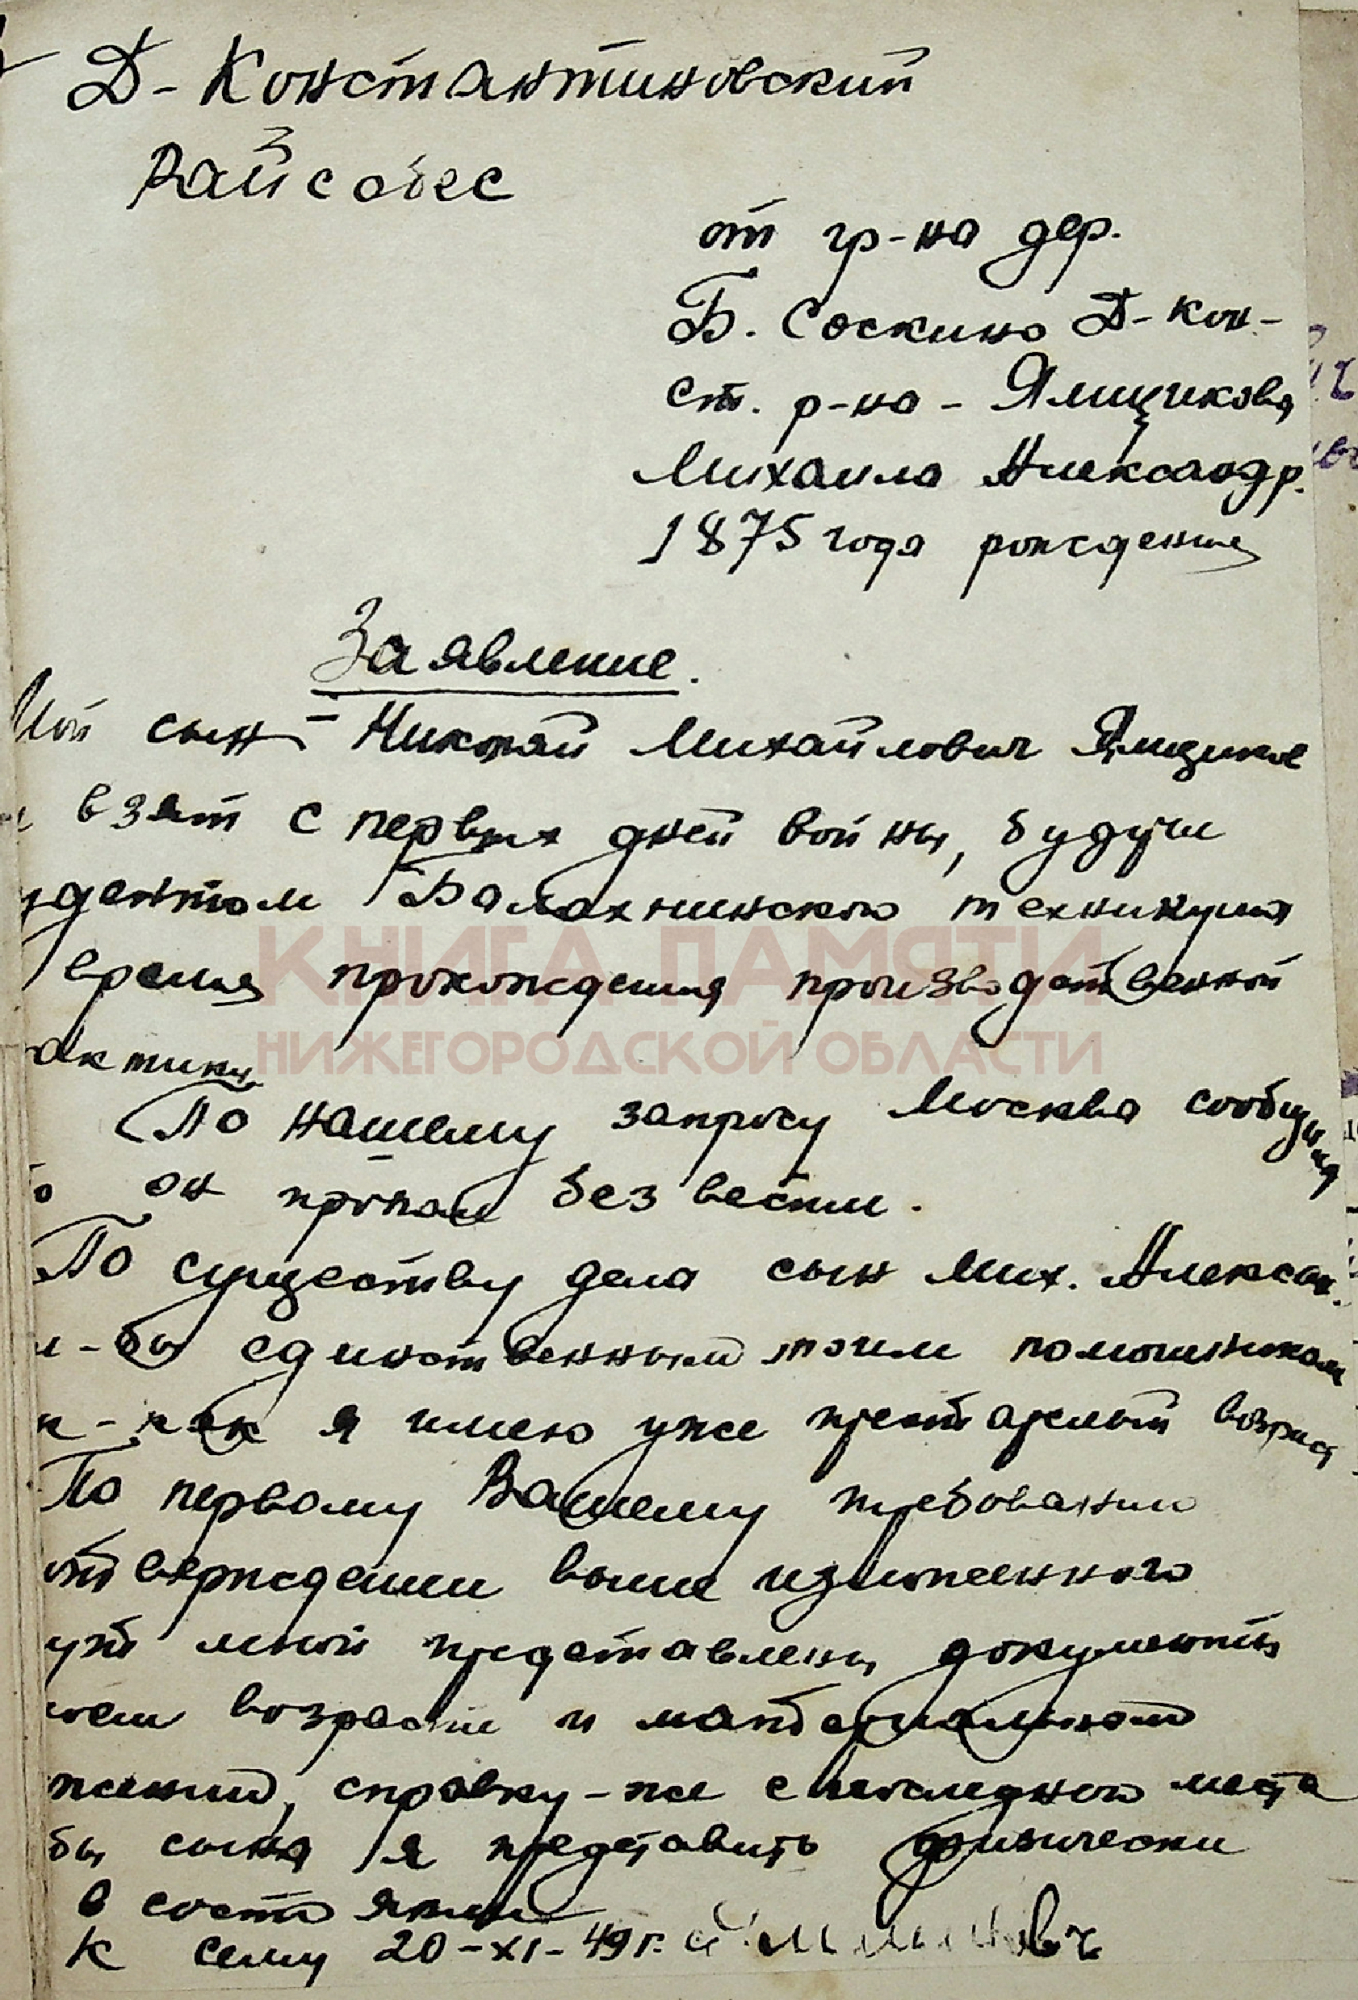 Д-Константиновский
Райсобес
от гр-на дер.
Б. Соскино Д-Кон-
ст. р-на - Ямщикова
Михаила Александр.
1875 года рождения
Заявление.
Мой сын - Николай Михайлович Ямщиков
взят с первых дней войны, будучи
удентом Балахнинского техникума
время прохождения производственной
актики
По нашему запросу Москва сообщила
о он пропал без вести.
По существу дела сын Мих. Алексан.
л-бы единственным моим помошником
к-как я имею уже престарелый возраст
По первому Вашему требованию
отверждении выше изложенного
ут мной представлены документы
моем возрасте и материальном
жении, справку-же с последнего места
бы сына я представить физически
в состоянии
К сему 20-XI-49 г.
КНИГА ПАМЯТИ
НИЖЕГОРОДСКОЙ ОБЛАСТИ